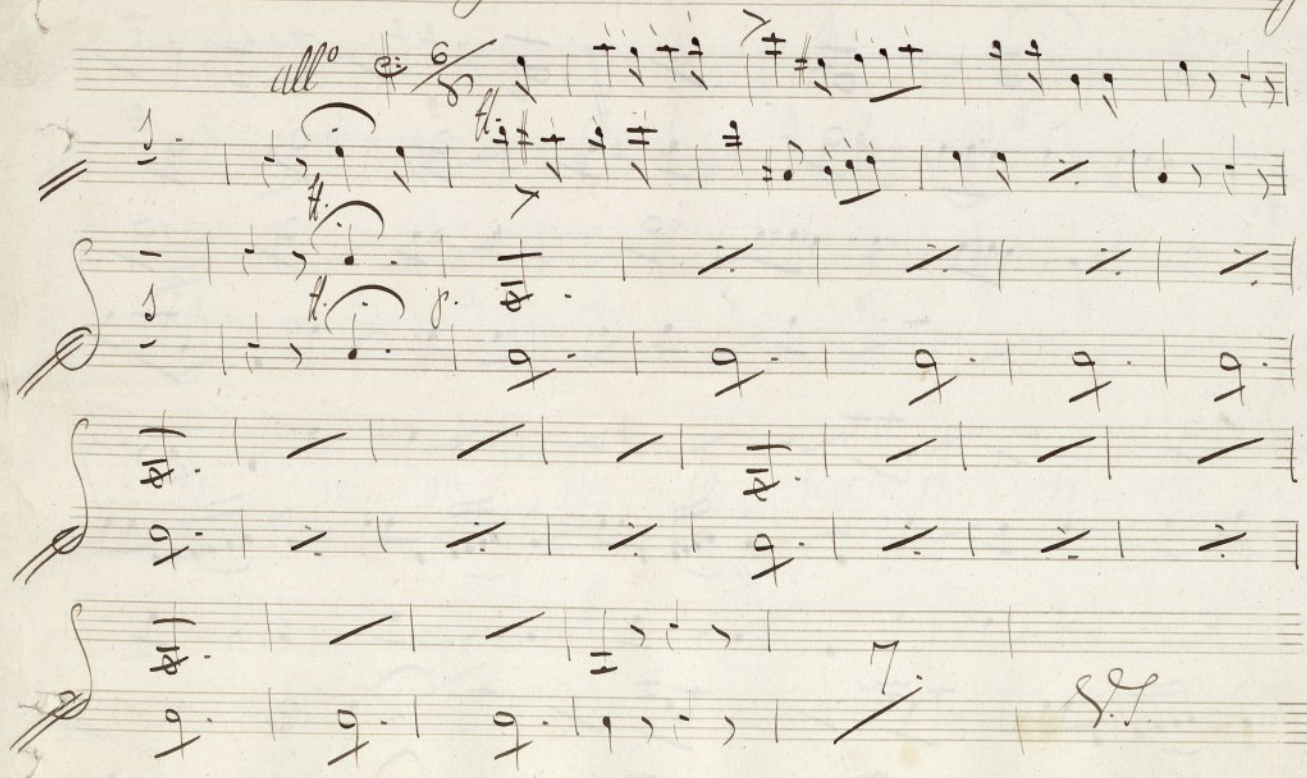 all° 6/8
ff.
1
ff.
1 ff. p.
7.
V.S.